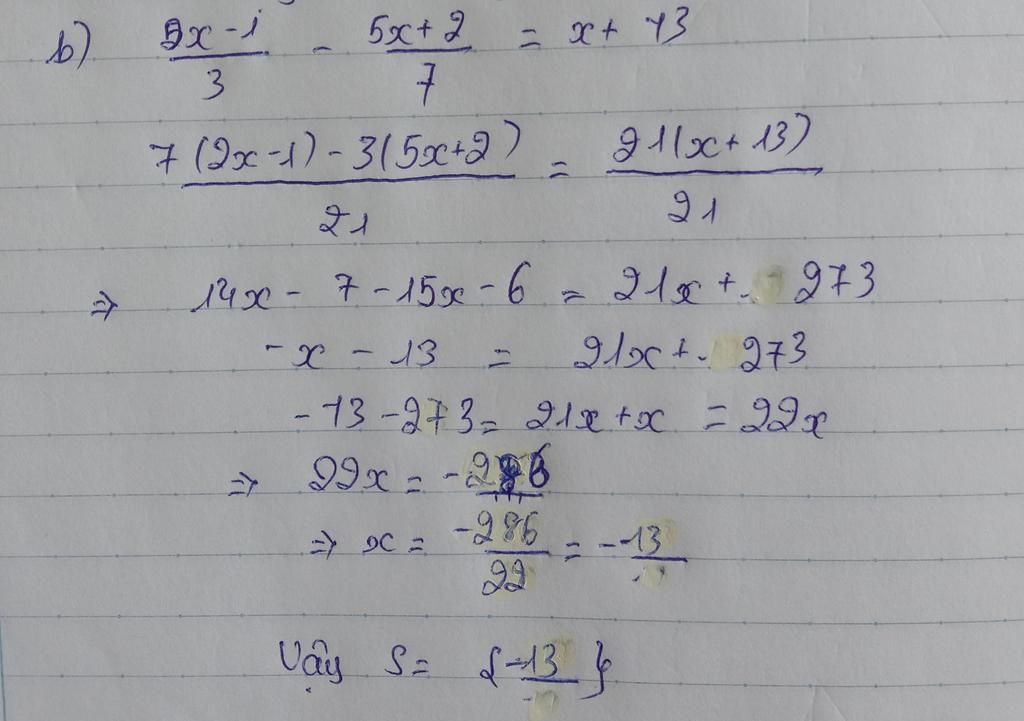 b) (2x-1)/3 - (5x+2)/7 = x + 13
(7(2x-1) - 3(5x+2))/21 = 21(x+13)/21
⇒ 14x - 7 - 15x - 6 = 21x + 273
-x - 13 = 21x + 273
-13 - 273 = 21x + x = 22x
⇒ 22x = -286
⇒ x = -286/22 = -13
Vậy S = {-13}